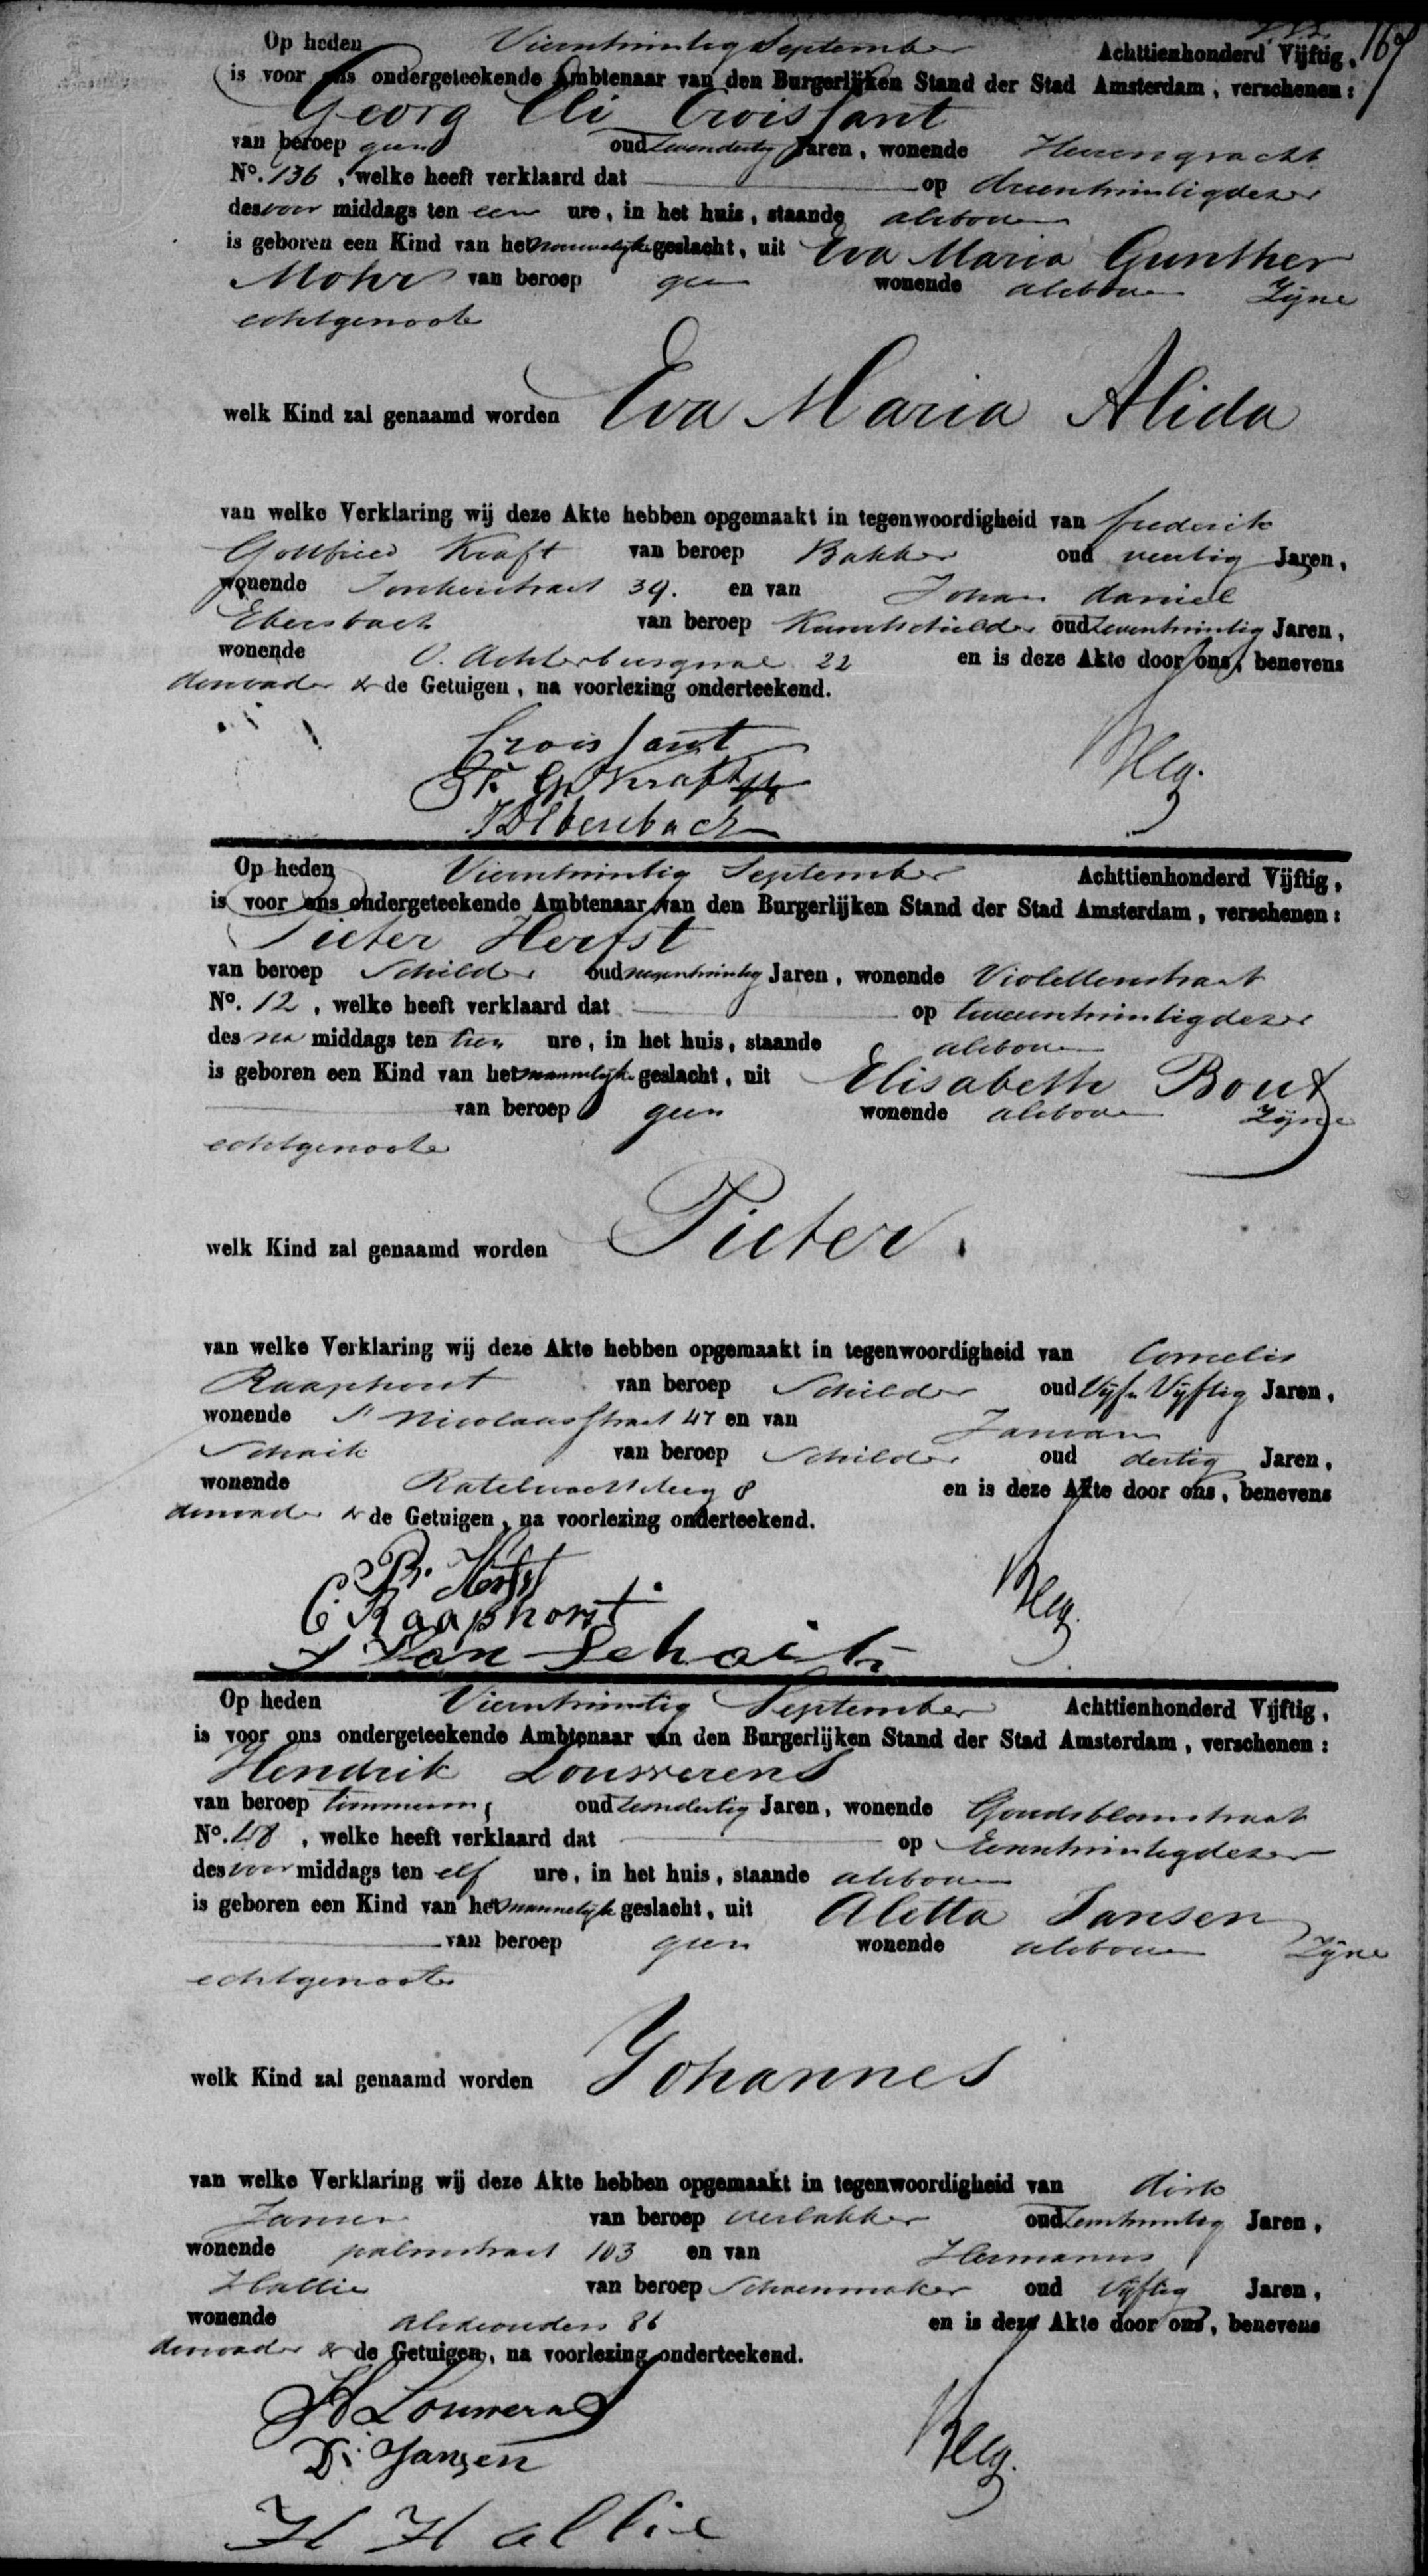 167
Op heden Vierentwintig September Achttienhonderd Vijftig,
is voor ons ondergeteekende Ambtenaar van den Burgerlijken Stand der Stad Amsterdam, verschenen:
Georg Croissant
van beroep geen oud Jaren, wonende Heerengracht
No. 136, welke heeft verklaard dat op drieentwintig dezer
des voor middags ten een ure, in het huis, staande alsboven
is geboren een Kind van het vrouwelijke geslacht, uit Eva Maria Gunther
Mohr van beroep geen wonende alsboven Zijne
echtgenoote
welk Kind zal genaamd worden Eva Maria Alida
van welke Verklaring wij deze Akte hebben opgemaakt in tegenwoordigheid van frederik
Gottfried Kraft van beroep Bakker oud Jaren,
wonende Jonkerstraat 39. en van Johan daniel
Ebersbach van beroep Kunstschilder oud zevenentwintig Jaren,
wonende O. Achterburgwal 22 en is deze Akte door ons, benevens
den vader & de Getuigen, na voorlezing onderteekend.
Croissant
Fr. G. Kraft
J D Ebersbach
Op heden Vierentwintig September Achttienhonderd Vijftig,
is voor ons ondergeteekende Ambtenaar van den Burgerlijken Stand der Stad Amsterdam, verschenen:
Pieter Herfst
van beroep Schilder oud negenentwintig Jaren, wonende Violettenstraat
No. 12, welke heeft verklaard dat op tweeentwintig dezer
des na middags ten tien ure, in het huis, staande alsboven
is geboren een Kind van het mannelijke geslacht, uit Elisabeth Bout
van beroep geen wonende alsboven Zijne
echtgenoote
welk Kind zal genaamd worden Pieter.
van welke Verklaring wij deze Akte hebben opgemaakt in tegenwoordigheid van Cornelis
Raaphorst van beroep Schilder oud Vijf en Vijftig Jaren,
wonende St Nicolaasstraat 47 en van Jan van
Schaik van beroep Schilder oud dertig Jaren,
wonende Ratelwachtsteeg 8 en is deze Akte door ons, benevens
den vader & de Getuigen, na voorlezing onderteekend.
P. Herfst
C. Raaphorst.
J Van Schaik
Op heden Vierentwintig September Achttienhonderd Vijftig,
is voor ons ondergeteekende Ambtenaar van den Burgerlijken Stand der Stad Amsterdam, verschenen:
Hendrik Louwerens
van beroep timmerm oud Jaren, wonende Goudsbloemstraat
No. 48, welke heeft verklaard dat op Eenentwintig dezer
des voor middags ten elf ure, in het huis, staande alsboven
is geboren een Kind van het mannelijke geslacht, uit Aletta Jansen
van beroep geen wonende alsboven Zijne
echtgenoote
welk Kind zal genaamd worden Johannes
van welke Verklaring wij deze Akte hebben opgemaakt in tegenwoordigheid van dirk
Jansen van beroep verlakker oud Jaren,
wonende palmstraat 103 en van Hermanus
Hallie van beroep Schoenmaker oud Vijftig Jaren,
wonende 86 en is deze Akte door ons, benevens
den vader & de Getuigen, na voorlezing onderteekend.
H Louwerens
D. Jansen
H Hallie